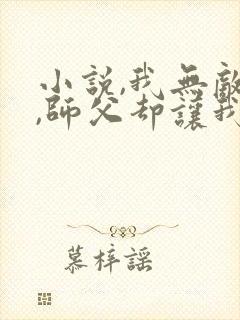 小說,我無敵
,師父却讓我
慕梓謠